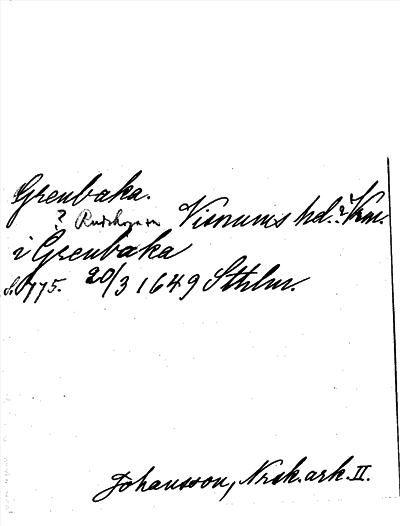 Grenbaka.
? Rudskoga sn Visnums hd. ? Vrm.
i Grenbaka
S. 775. 20/3 1649 Sthlm.
Johansson, Norsk. ark. II.